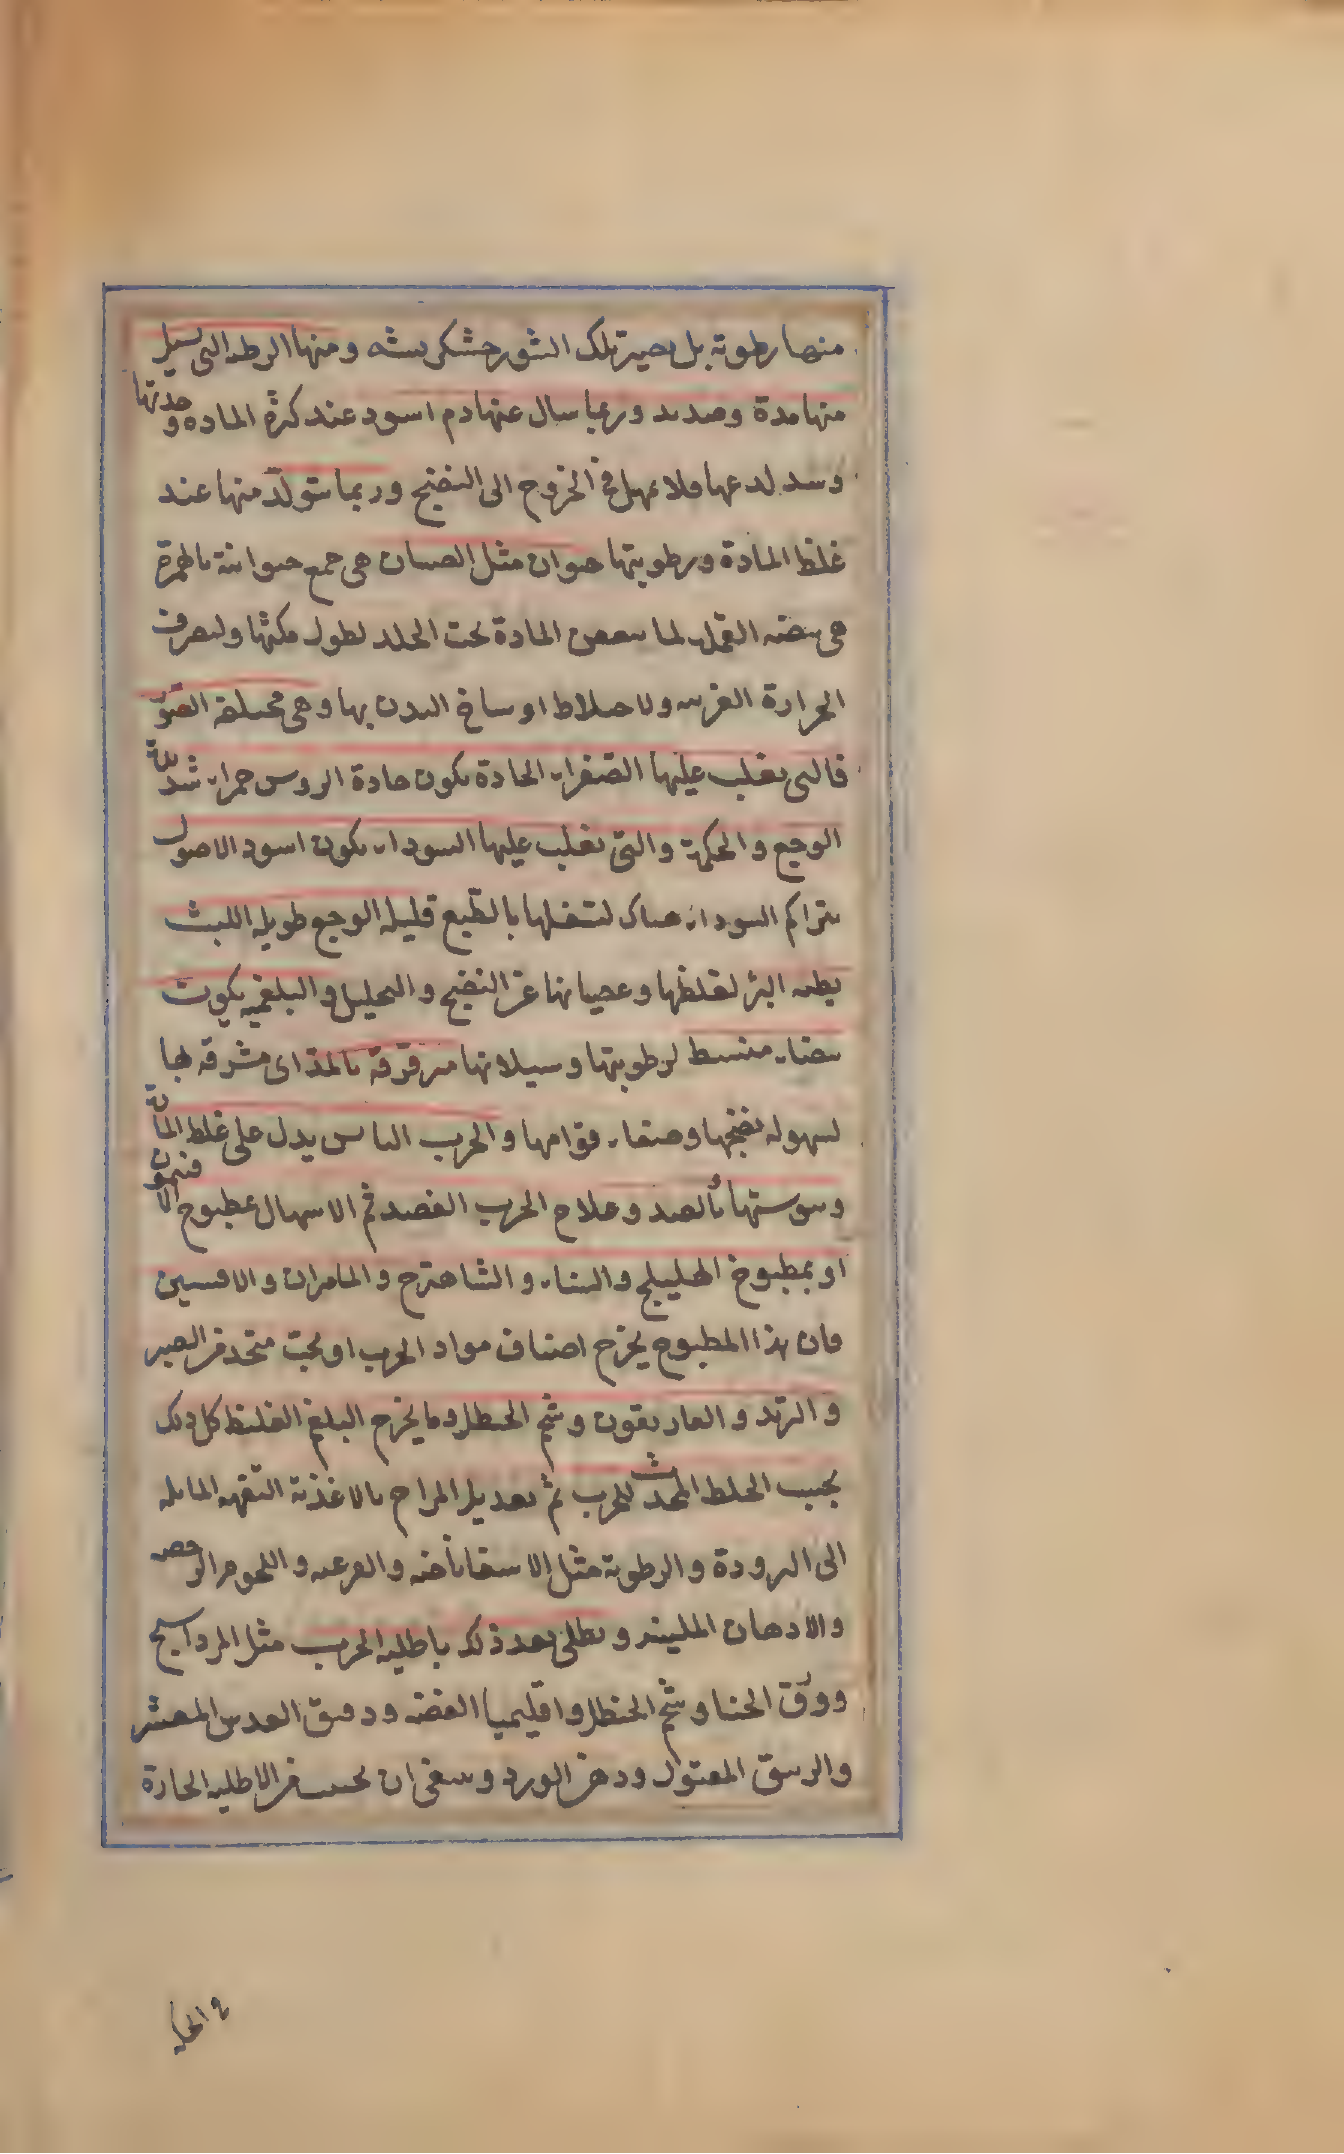 منها رطوبة بل يصير تلك البثور خشكريشه ومنها الرطبه التى تسيل
منها مدة وصديد وربما سال عنها دم اسود عند كثرة المادة وحدتها
وشدة لدعها فلا يمهل فى الخروج الى النضج وربما يتولد منها عند
غلظ المادة ورطوبتها حيوان مثل الصيبان هى جمع صوابة بالهمزة
هى بيضه القمل لما يتعفن المادة تحت الجلد لطول مكثها ولتصرف
الحرارة الغريبه ولاختلاط اوساخ البدن بها وهى مختلفة الصور
فالتى يغلب عليها الصفراء الحادة يكون حادة الروس حمراء شديدة
الوجع والحكة والتى يغلب عليها السوداء يكون اسود الاصول
بتراكم السوداء هناك لتسفلها بالطبع قليله الوجع طويله اللبث
بطيه البرء لغلظها وعصيانها عن النضج والتحليل والبلغميه يكون
بيضاء منبسط لرطوبتها وسيلانها مترقرقة بالمدة اى مشرقه لها
لسهوله نضجها وصفاء قوامها والجرب اليابس يدل على غلظ المادة
ويبوستها بالضد وعلاج الجرب الفصد ثم الاسهال بمطبوخ الافتيمون
او بمطبوخ الهليلج والسناء والشاهترج والمامران والافسنتين
فان هذا المطبوخ يخرج اصناف مواد الجرب او بحب متخذ من الصبر
والتربد والغاريقون وشحم الحنظل وما يخرج البلغم الغليظ كل ذلك
بحسب الخلط المحدث للجرب ثم تعديل المزاج بالاغذية التفهه المايله
الى البرودة والرطوبة مثل الاسفاناخيه والقرعيه واللحوم الرخصه
والادهان الملينه ويطلى بعد ذلك باطليه الجرب مثل المرداسنج
وورق الحنا وشحم الحنظل واقليميا الفضه ودقيق العدس المقشر
والزيبق المقتول ودهن الورد وينبغى ان يجتنب من الاطليه الحادة
فى الحكه